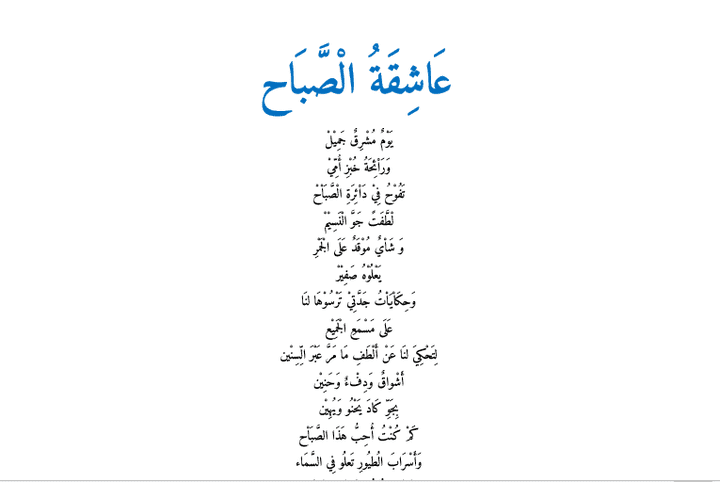 عَاشِقَةُ الْصَّبَاح
يَوْمٌ مُشْرِقٌ جَمِيْلْ
وَرَاْئِحَةُ خُبْزِ أُمِّيْ
تَفُوْحُ فِيْ دَاْئِرَةِ الْصَّبَاْحْ
لْطَّفَتً جَوَّ الْنَسِيْمْ
وَ شَاْيٌ مُوْقَدٌ عَلَى الْجَمْرِ
يَعْلُوْهُ صَفِيْرْ
وَحِكَاْيَاْتُ جَدَّتِيْ تَرْسُوْهَا لنَا
عَلَى مَسْمَعِ الْجَمِيْع
لِتَحْكِيَ لنَا عَنْ أَلْطَفِ مَا مَرَّ عَبْرَ الِّسِنْين
أَشْواقٌ وَدِفْءٌ وَحَنِيْن
بِجَوِّ كَادَ يَحْنُو وَيُهِيْن
كَمْ كُنْتُ أُحِبُّ هَذَا الصَّبَاْح
وَأَسْرَابَ الُطيُورِ تَعلُو فِي السَّمَاء